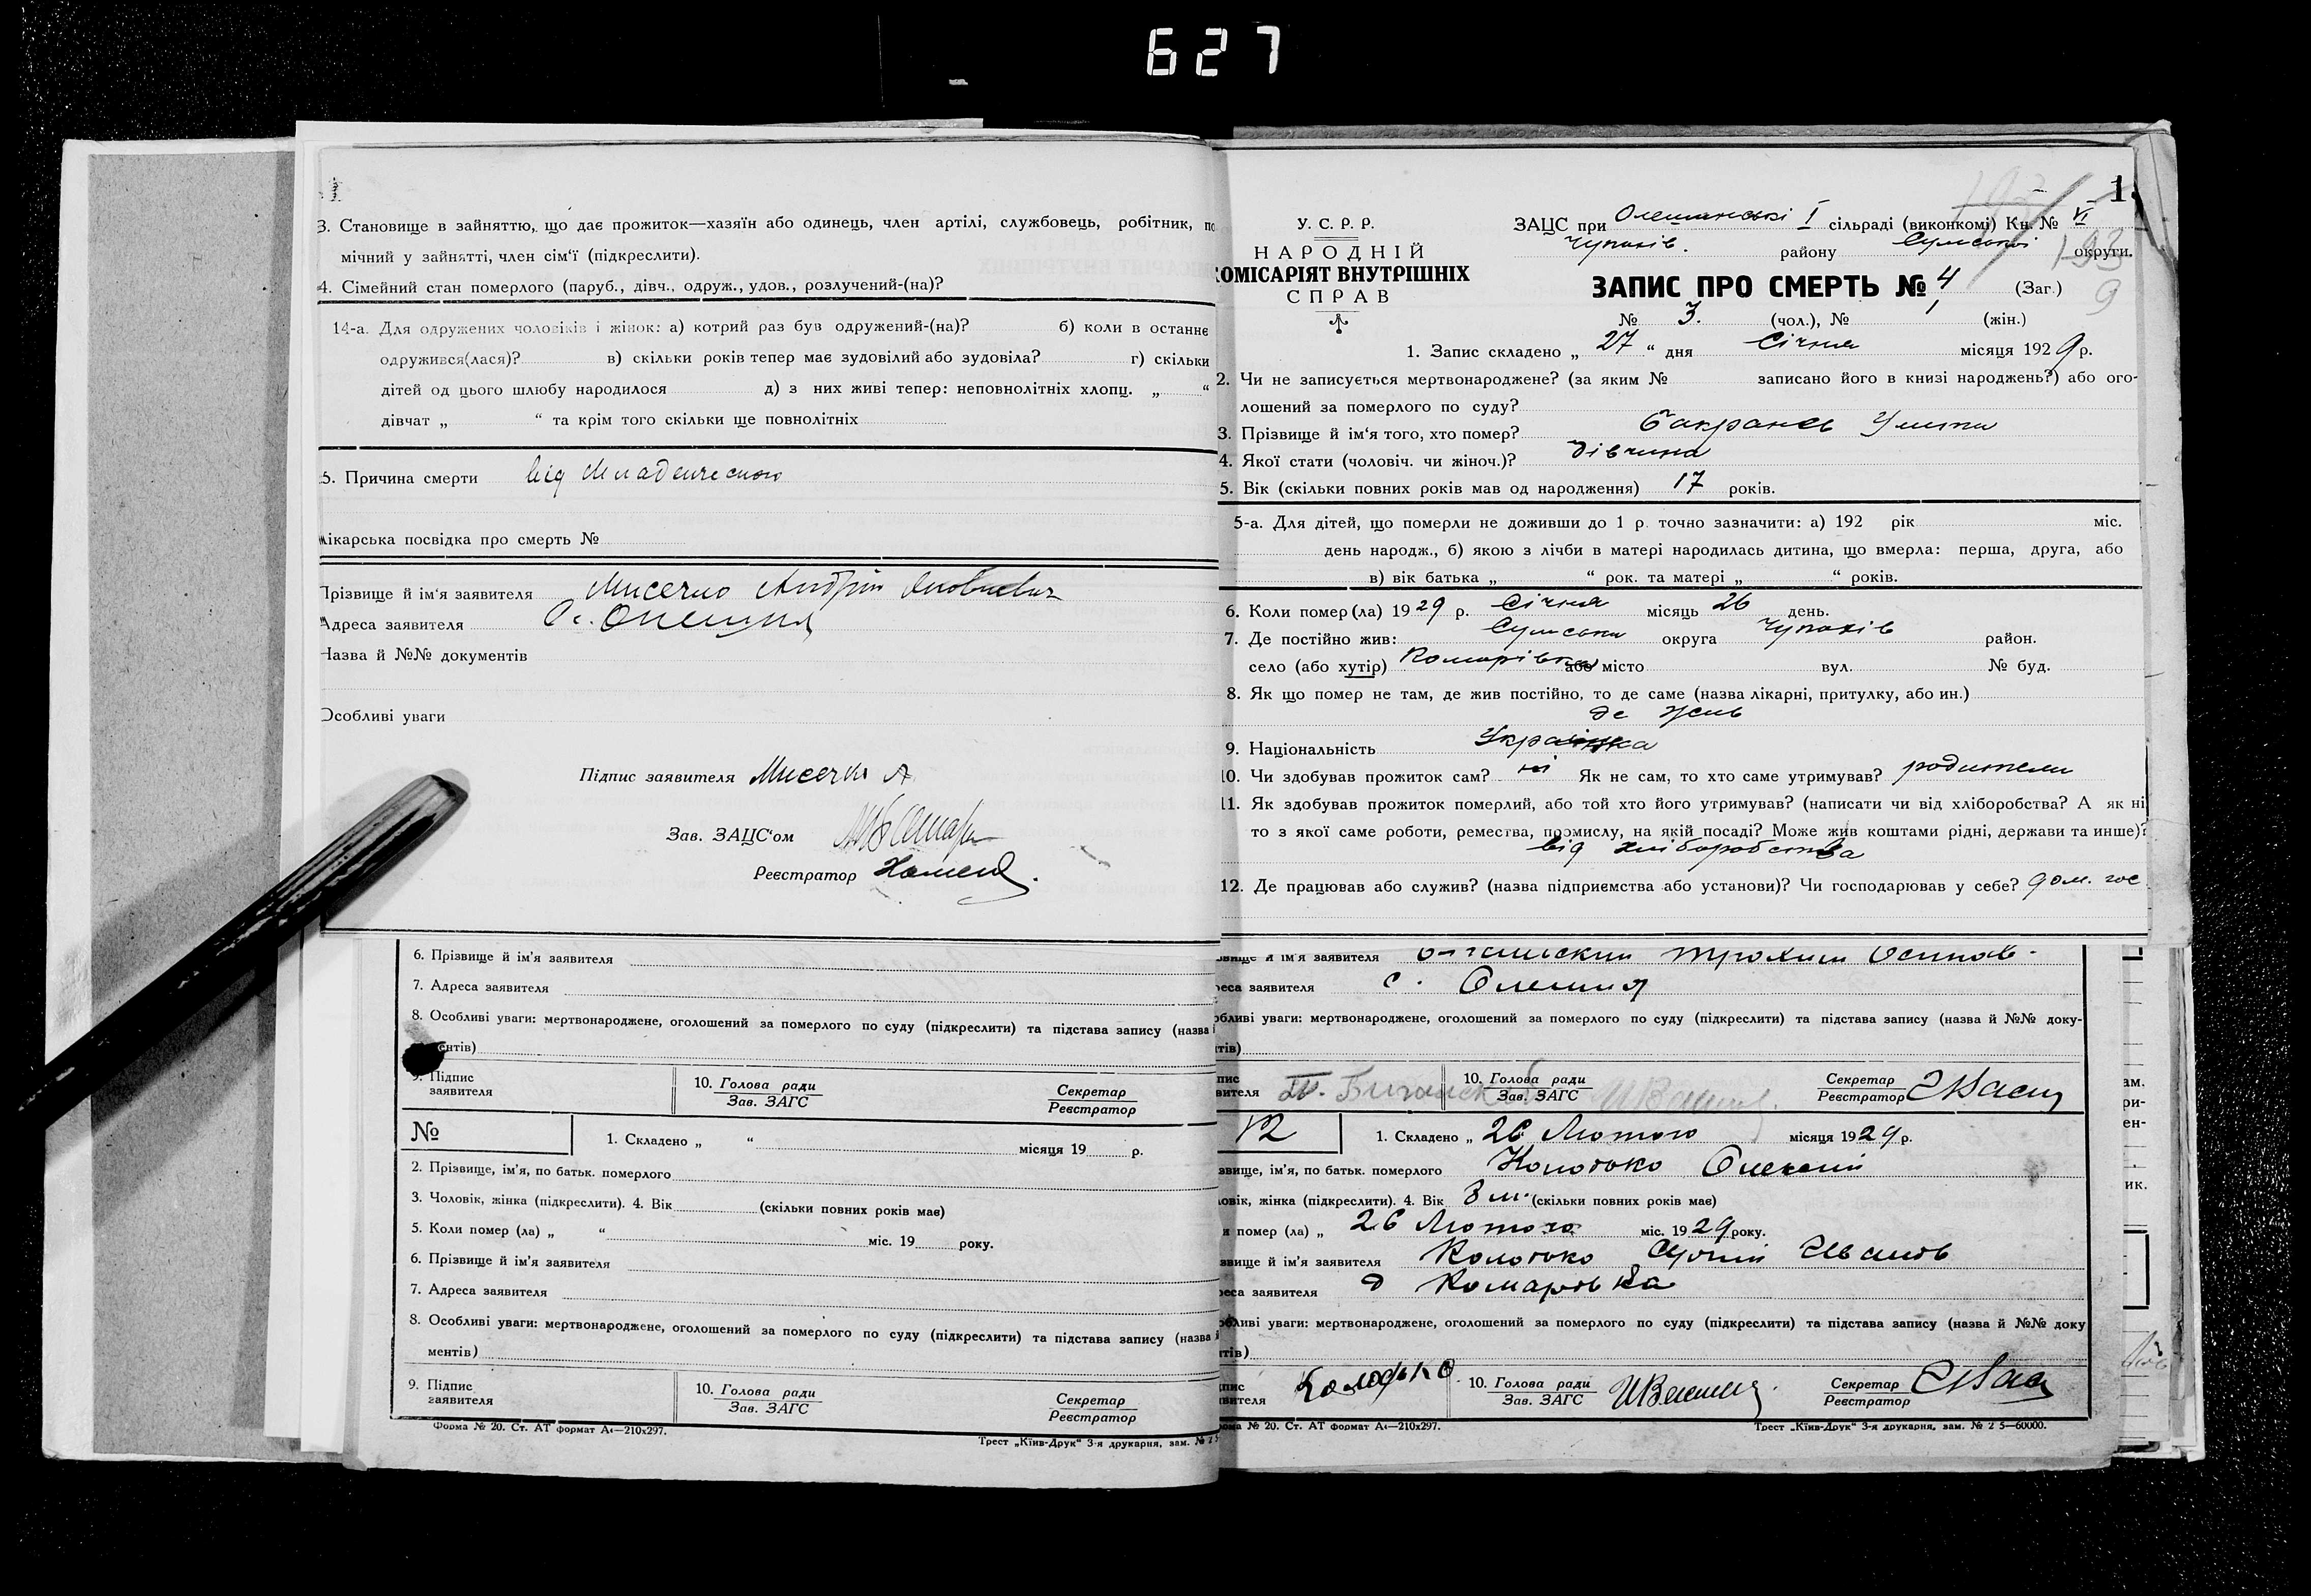 627
3. Становище в зайняттю, що дає прожиток—хазяїн або одинець, член артілі, службовець, робітник, по
мічний у зайнятті, член сім‘ї (підкреслити).
4. Сімейний стан померлого (паруб., дівч., одруж., удов., розлучений-(на)?
14-а. Для одружених чоловіків і жінок: а) котрий раз був одружений-(на)? б) коли в останнє
одружився(лася)? в) скільки років тепер має зудовілий або зудовіла? г) скільки
дітей од цього шлюбу народилося д) з них живі тепер: неповнолітніх хлопц. „ “
дівчат „ “ та крім того скільки ще повнолітніх
5. Причина смерти від
лікарська посвідка про смерть №
Прізвище й ім‘я заявителя Мисечко Андрій Яковлевич
Адреса заявителя с. Олешня
Назва й №№ документів
Особливі уваги
Підпис заявителя Мисечко А
Зав. ЗАЦС‘ом
Реєстратор
6. Прізвище й ім‘я заявителя
7. Адреса заявителя
8. Особливі уваги: мертвонароджене, оголошений за померлого по суду (підкреслити) та підстава запису (назва й
ентів)
9. Підпис заявителя 10. Голова ради Зав. ЗАГС Секретар Реєстратор
№ 1. Складено „ “ місяця 19 р.
2. Прізвище, ім‘я, по батьк. померлого
3. Чоловік, жінка (підкреслити). 4. Вік (скільки повних років має)
5. Коли помер (ла) „ “ міс. 19 року.
6. Прізвище й ім‘я заявителя
7. Адреса заявителя
8. Особливі уваги: мертвонароджене, оголошений за померлого по суду (підкреслити) та підстава запису (назва й
ментів)
9. Підпис заявителя 10. Голова ради Зав. ЗАГС Секретар Реєстратор
Форма № 20. Ст. АТ формат А4—210х297. Трест „Київ-Друк“ 3-я друкарня, зам. № 2 5
У. С. Р. Р.
НАРОДНІЙ
КОМІСАРІЯТ ВНУТРІШНІХ
СПРАВ
ЗАЦС при Олешанські I сільраді (виконкомі) Кн. № VI
Чупахів. району Сумської округи.
193
9
ЗАПИС ПРО СМЕРТЬ № 4 (Заг.)
№ 3. (чол.), № 1 (жін.)
1. Запис складено „ 27 “ дня Січня місяця 1929 р.
2. Чи не записується мертвонароджене? (за яким № записано його в книзі народжень?) або ого-
лошений за померлого по суду?
3. Прізвище й ім‘я того, хто помер?
4. Якої стати (чоловіч. чи жіноч.)? дівчина
5. Вік (скільки повних років мав од народження) 17 років.
5-а. Для дітей, що померли не доживши до 1 р. точно зазначити: а) 192 рік міс.
день народж., б) якою з лічби в матері народилась дитина, що вмерла: перша, друга, або
в) вік батька „ “ рок. та матері „ “ років.
6. Коли помер (ла) 1929 р. Січня місяць 26 день.
7. Де постійно жив: Сумськи округа Чупахів район.
село (або хутір) Комарівка або місто вул. № буд.
8. Як що помер не там, де жив постійно, то де саме (назва лікарні, притулку, або ин.)
де жив
9. Національність Українка
10. Чи здобував прожиток сам? ні Як не сам, то хто саме утримував? родители
11. Як здобував прожиток померлий, або той хто його утримував? (написати чи від хліборобства? А як ні
то з якої саме роботи, ремества, промислу, на якій посаді? Може жив коштами рідні, держави та инше)?
від хліборобства
12. Де працював або служив? (назва підприємства або установи)? Чи господарював у себе? дом. гос
звище й ім‘я заявителя Трохим Осипов.
реса заявителя с. Олешня
обливі уваги: мертвонароджене, оголошений за померлого по суду (підкреслити) та підстава запису (назва й №№ доку-
тів)
пис вителя 10. Голова ради Зав. ЗАГС Секретар Реєстратор
12 1. Складено „ 26 Лютого місяця 1929 р.
звище, ім‘я, по батьк. померлого Колотько Олексій
овік, жінка (підкреслити). 4. Вік 8 м. (скільки повних років має)
и помер (ла) „ 26 Лютого міс. 1929 року.
звище й ім‘я заявителя Колотько Іванов
реса заявителя Комаровка
обливі уваги: мертвонароджене, оголошений за померлого по суду (підкреслити) та підстава запису (назва й №№ доку
тів)
пис вителя Колодько 10. Голова ради Зав. ЗАГС Секретар Реєстратор
рма № 20. Ст. АТ формат А4—210х297. Трест „Київ-Друк“ 3-я друкарня, зам. № 2 5—60000.